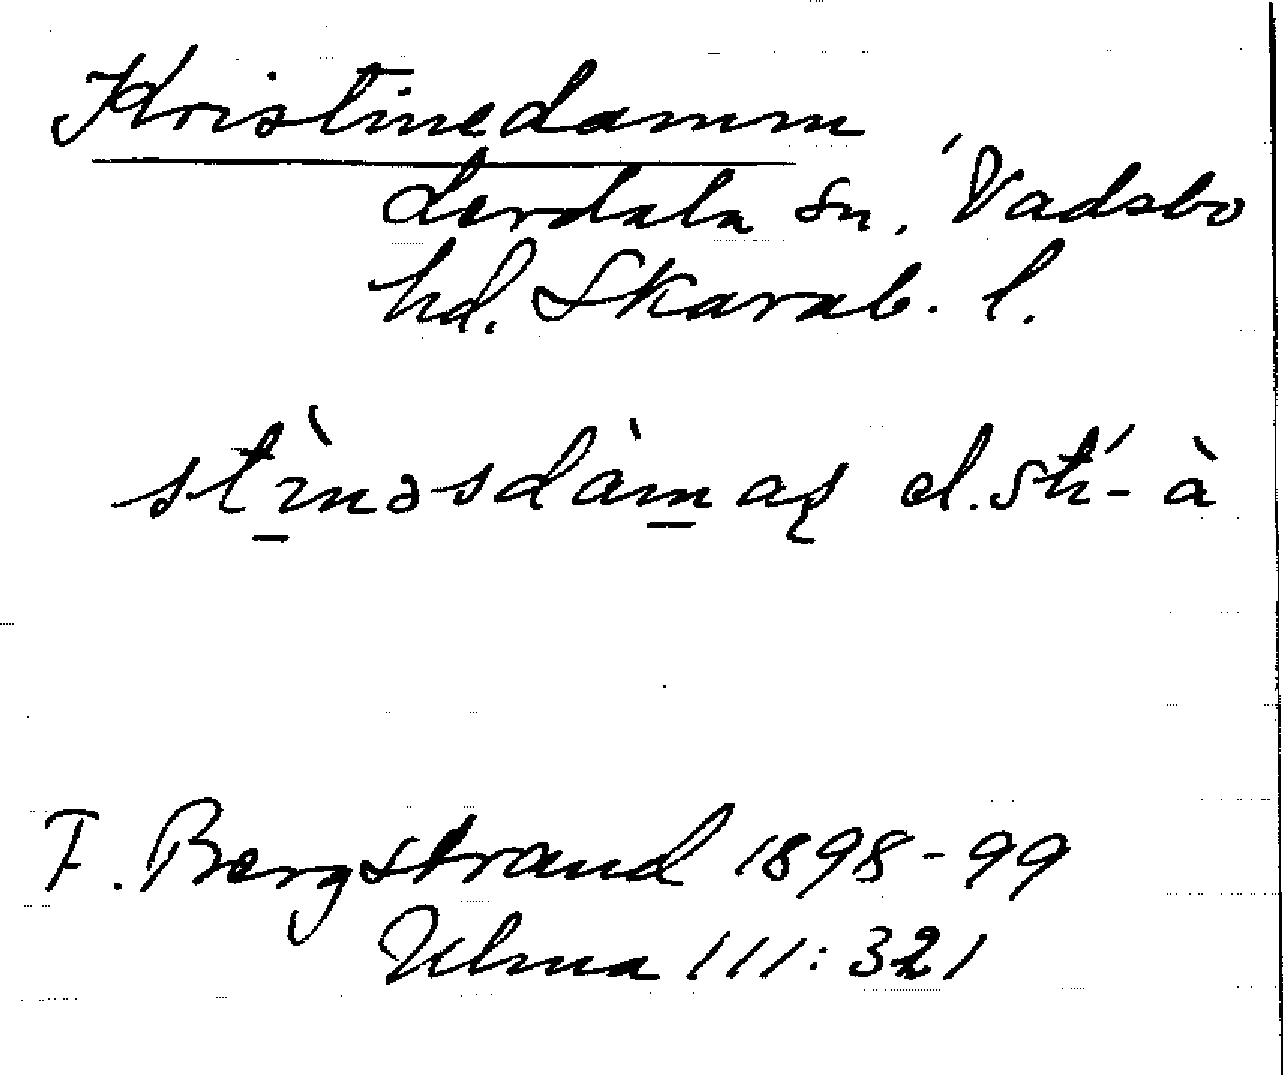 Kristinedamm
Lerdala sn, Vadsbo
hd. Skarab. l.
stìnəsdàmaʂ el. stí- à
F. Bergstrand 1898-99
Ulma 111:321